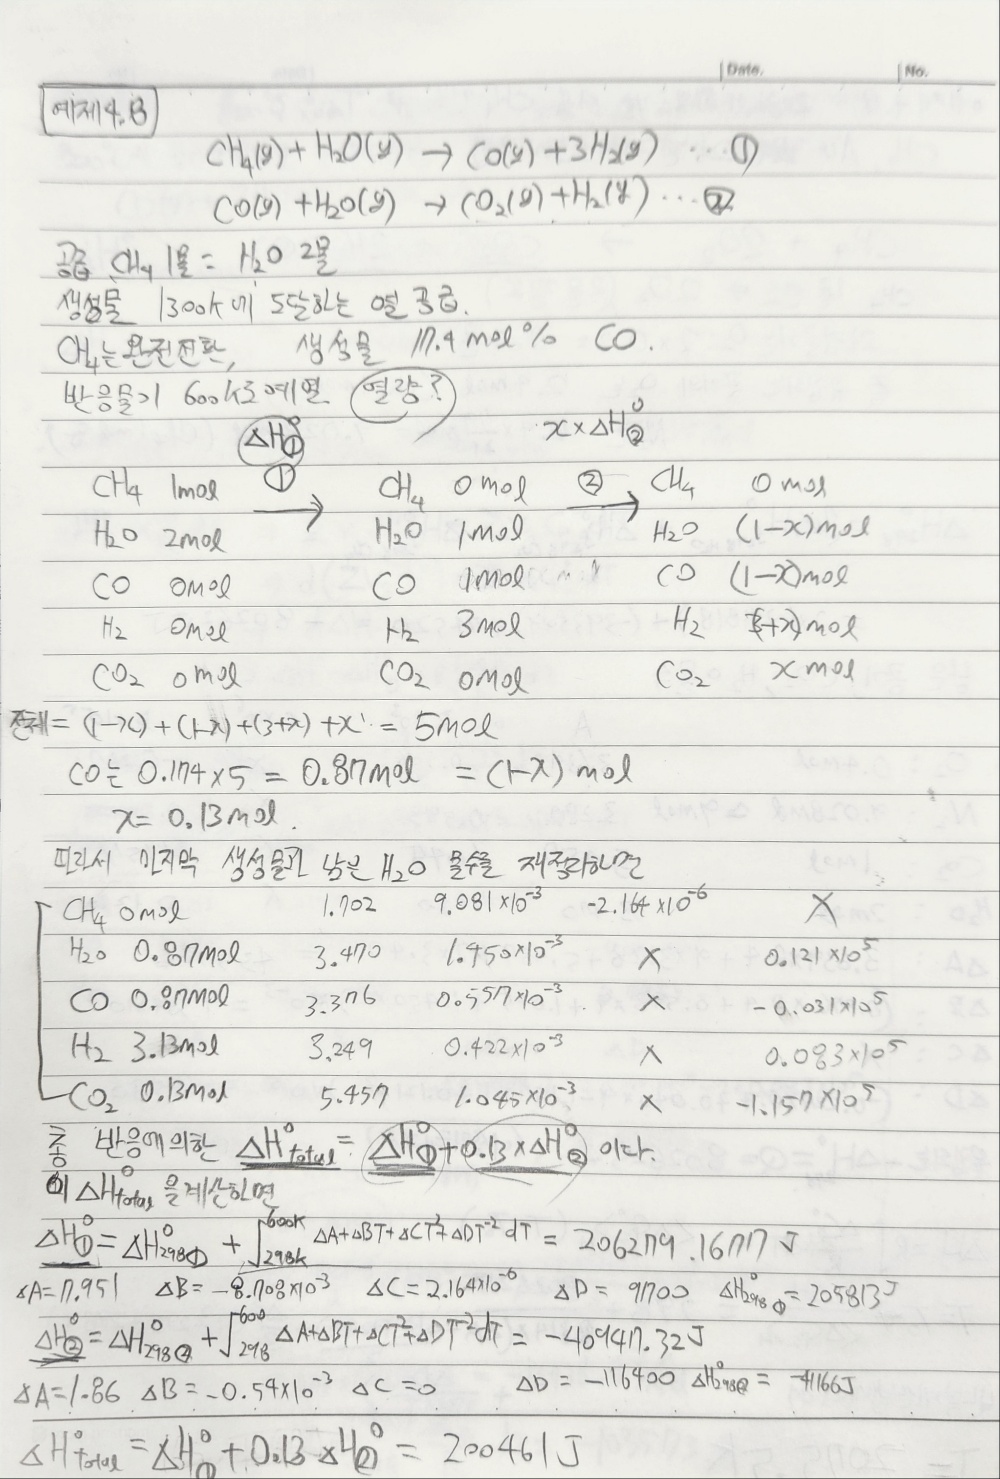 Date. No.
예제4.8
CH₄(g)+H₂O(g) → CO(g)+3H₂(g) ... ①
CO(g)+H₂O(g) → CO₂(g)+H₂(g) ... ②
공급 CH₄ 1몰 = H₂O 2몰
생성물 1300K에 도달하는 열 공급.
CH₄는 완전전환, 생성물 17.4 mol% CO.
반응물이 600K로 예열. 열량?
ΔH°① x×ΔH°②
CH₄ 1mol ① → CH₄ 0mol ② → CH₄ 0mol
H₂O 2mol H₂O 1mol H₂O (1-x)mol
CO 0mol CO 1mol CO (1-x)mol
H₂ 0mol H₂ 3mol H₂ (3+x)mol
CO₂ 0mol CO₂ 0mol CO₂ x mol
전체= (1-x) + (1-x) + (3+x) + x = 5mol
CO는 0.174×5 = 0.87mol = (1-x) mol
x= 0.13mol.
따라서 마지막 생성물과 남은 H₂O 몰수를 재정리하면
CH₄ 0mol 1.702 9.081×10⁻³ -2.164×10⁻⁶ X
H₂O 0.87mol 3.470 1.450×10⁻³ X 0.121×10⁵
CO 0.87mol 3.376 0.557×10⁻³ X -0.031×10⁵
H₂ 3.13mol 3.249 0.422×10⁻³ X 0.083×10⁵
CO₂ 0.13mol 5.457 1.045×10⁻³ X -1.157×10⁵
총 반응에 의한 ΔH°total = ΔH°① + 0.13×ΔH°② 이다.
이 ΔH°total 을 계산하면
ΔH°① = ΔH°298① + ∫₂₉₈K⁶⁰⁰K ΔA+ΔBT+ΔCT²+ΔDT⁻² dT = 206279.1677 J
ΔA=7.951 ΔB=-8.708×10⁻³ ΔC=2.164×10⁻⁶ ΔD=9700 ΔH°298① = 205813J
ΔH°② = ΔH°298② + ∫₂₉₈⁶⁰⁰ ΔA+ΔBT+ΔCT²+ΔDT⁻²dT = -40947.32J
ΔA=1.86 ΔB=-0.54×10⁻³ ΔC=0 ΔD=-116400 ΔH°298② = -41166J
ΔH°total = ΔH°① + 0.13×H°② = 200461J